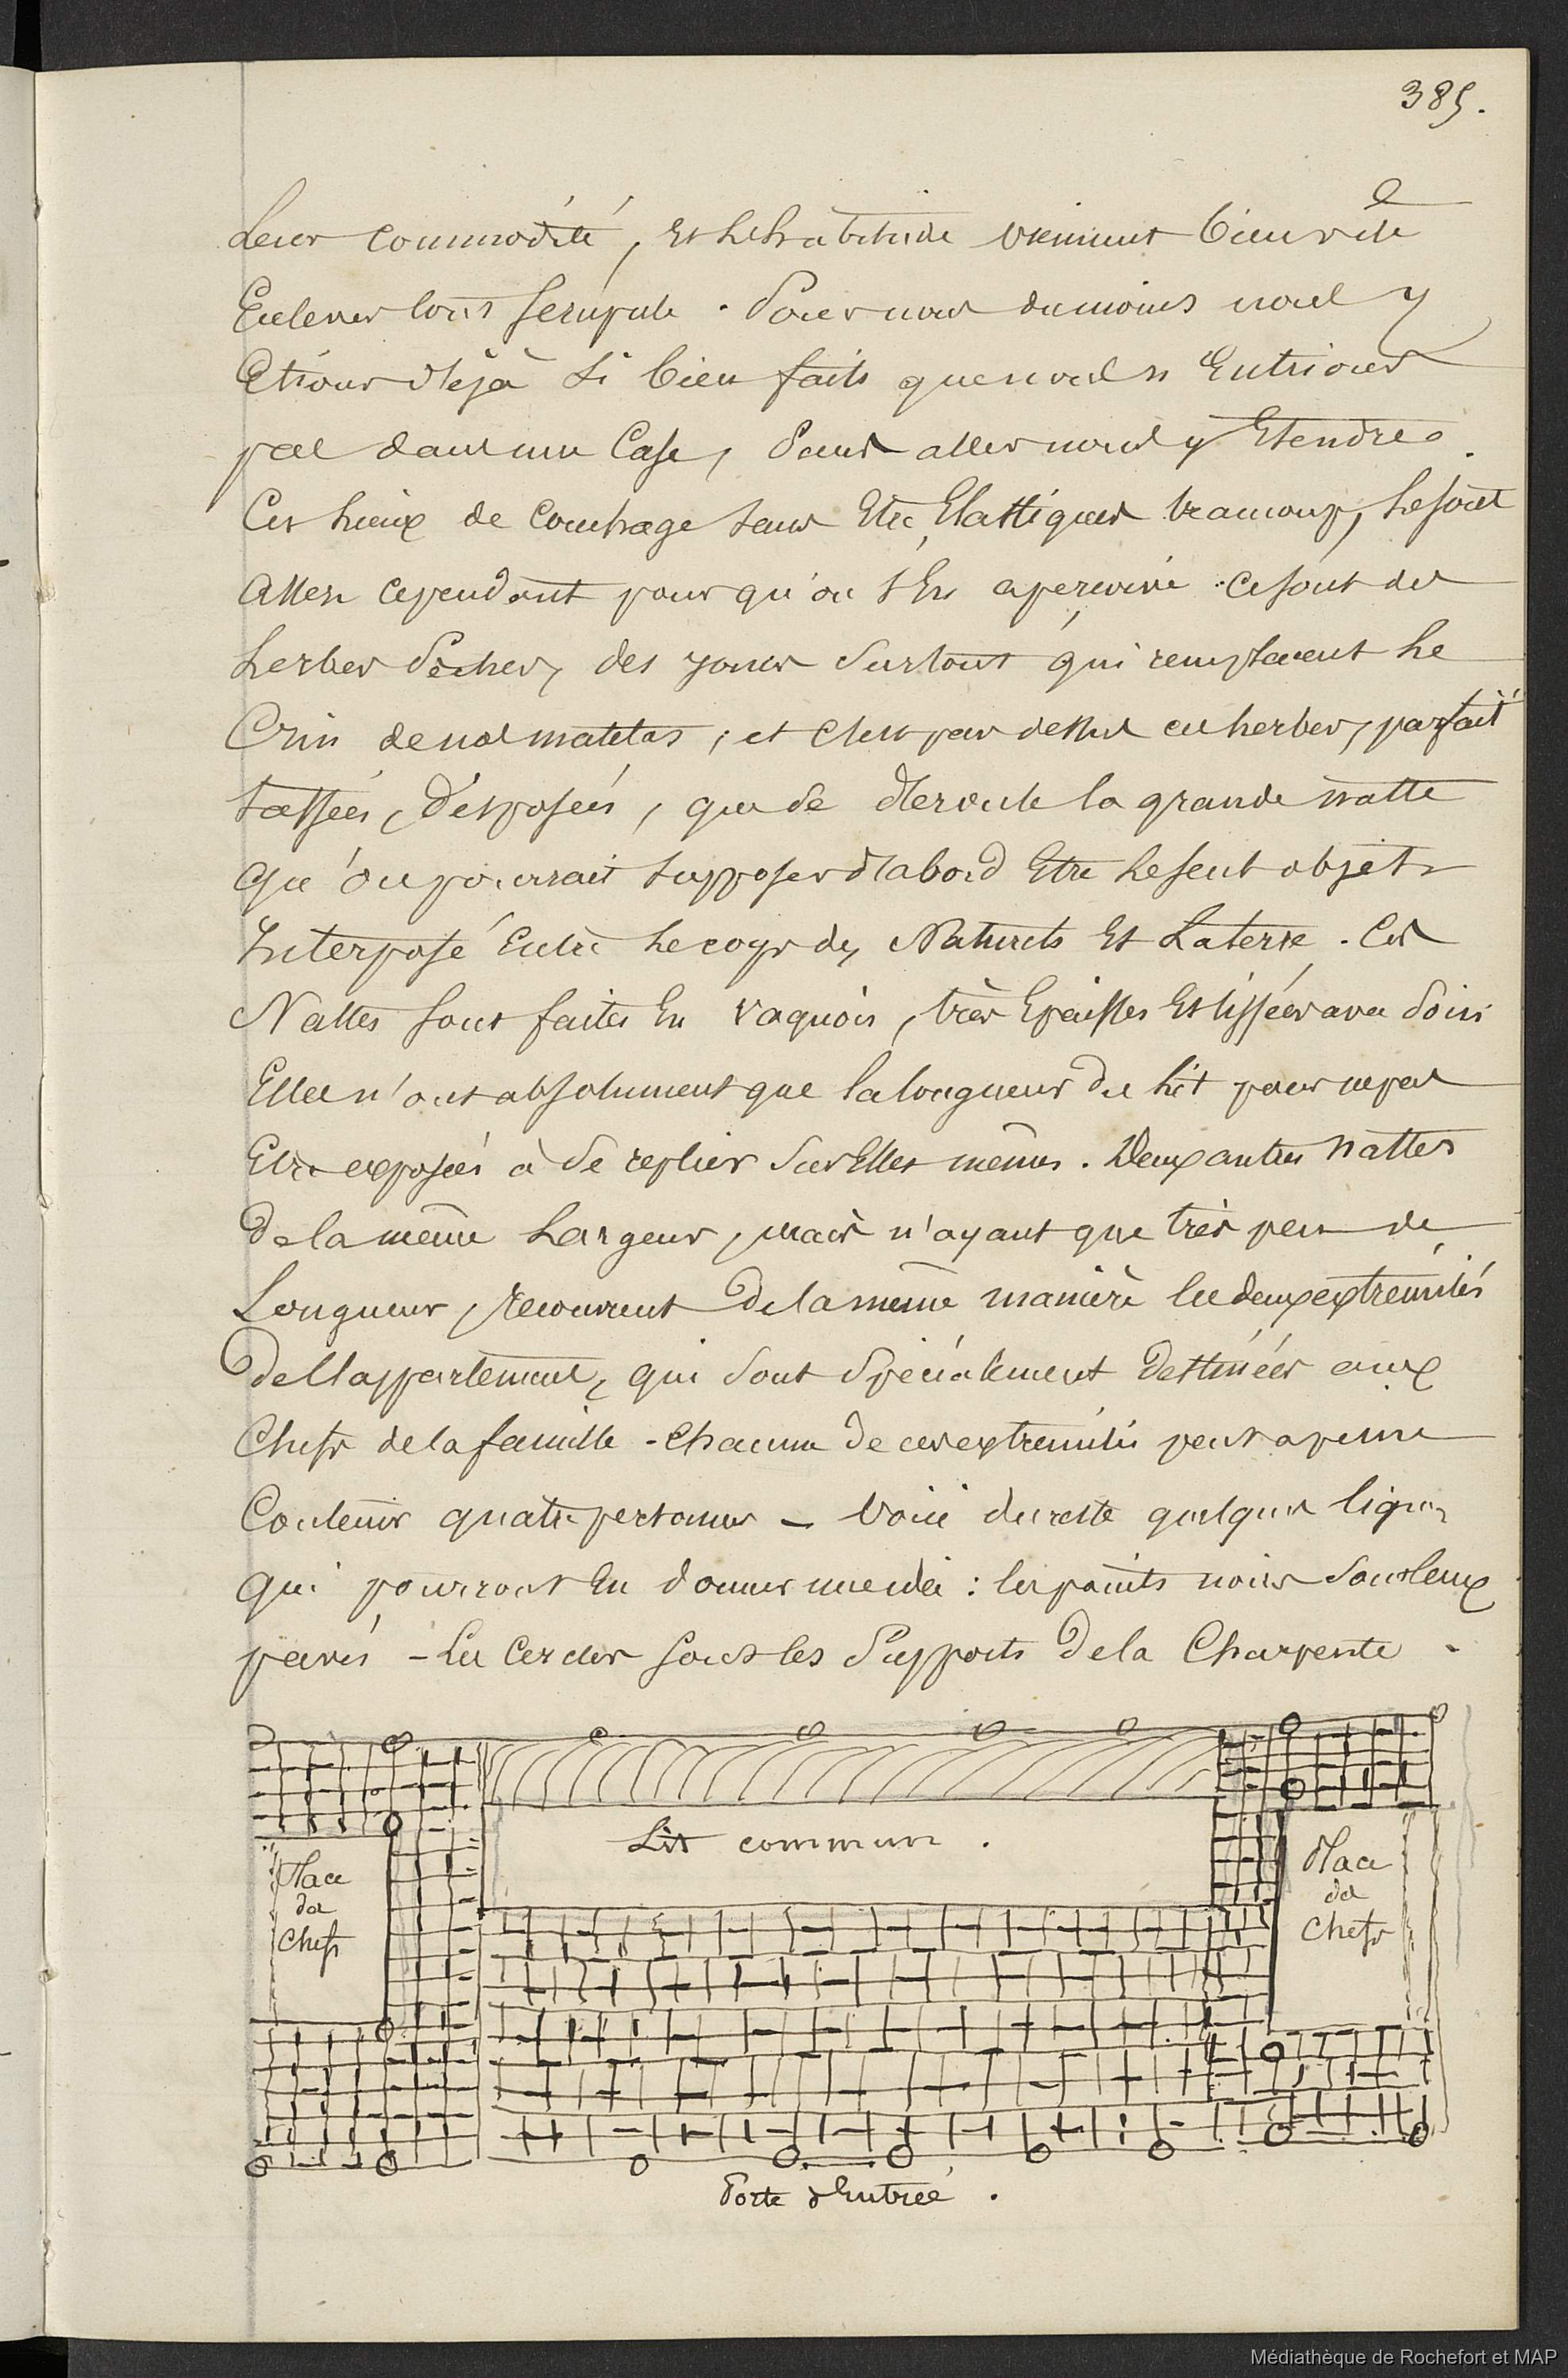 385.
Leur commodité, et l'habitude viennent bien vite
Enlever tous scrupule. Pour nous du moins nous y
Etions déjà si bien faits que nous n'entrions
pas dans une Case, sans aller nous y Etendre.
Ces lieux de couchage sans Etre Elastiques beaucoup, le sont
assez cependant pour qu'on s'en aperçoive. ce sont des
herbes sèches, des joncs surtout qui remplacent le
Crin de nos matelas; et c'est par dessus ces herbes, parfait
tassées, disposées, que se déroule la grande natte
qu'on pourrait supposer d'abord Etre le seul objet
Interposé Entre le corps des Naturels Et La terre. Ces
Nattes sont faites En vaquois, très Epaisses Et tissées avec soin
Elles n'ont absolument que la longueur du lit pour ne pas
Etre exposées à se replier sur Elles mêmes. Deux autres nattes
De la même Largeur, mais n'ayant que très peu de
Longueur, recouvrent de la même manière les deux extremités
De l'appartement, qui sont spécialement destinées aux
Chefs de la famille - chacune de ces extremités peut a peine
Contenir quatre personnes - Voici du reste quelques lignes
qui pourront En donner une idée : les points noirs sont les
pavés - Les Cercles sont les Supports De la Charpente -
Lit commun.
Place
des
Chefs
Place
des
Chefs
Porte d'Entrée.
Médiathèque de Rochefort et MAP